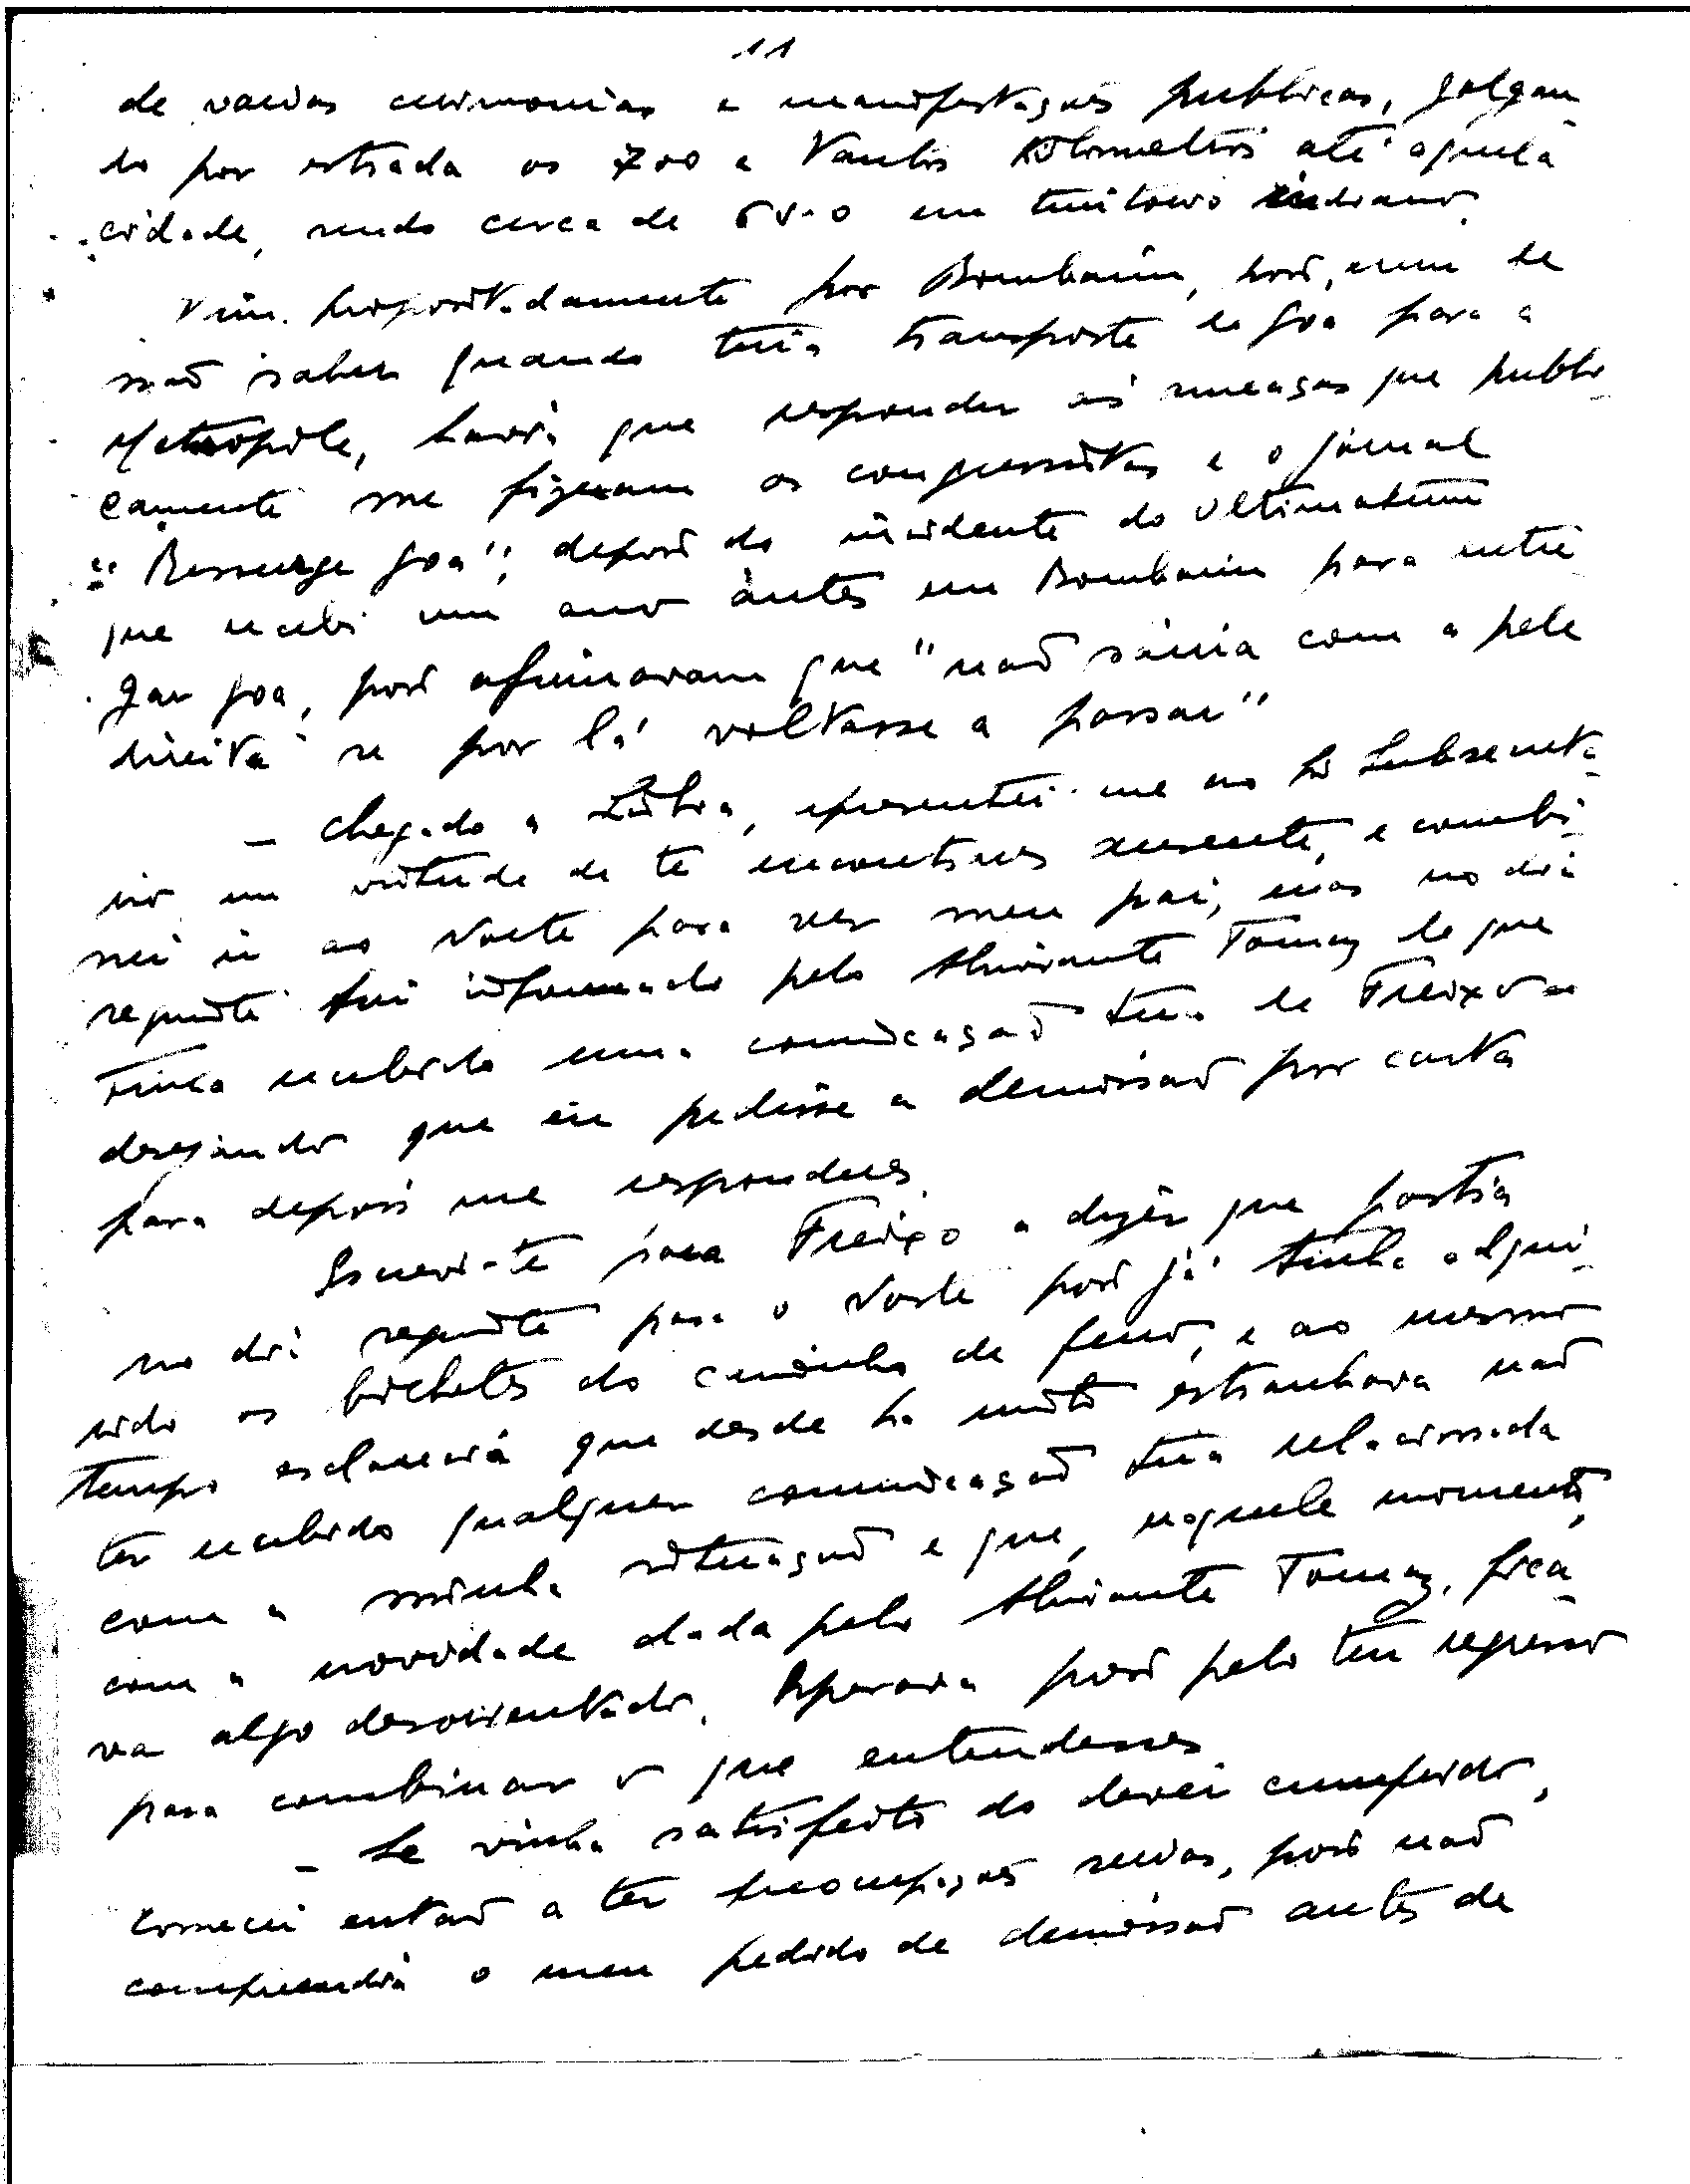 11
de varias cerimonias e manifestações publicas, galgan-
do por estrada os 700 e tantos kilometros até aquela
cidade, sendo cerca de 650 em territorio indiano.
Vim propositadamente por Bombaim, pois, alem de
não saber quando teria transporte de Goa para a
Metropole, havia que responder ás ameaças que publi-
camente me fizeram os congressistas e o jornal
"Ressurge Goa", depois do incidente do ultimatum
que recebi um ano antes em Bombaim para entre-
gar Goa, pois afirmaram que "não sairia com a pele
direita se por lá voltasse a passar"
- Chegado a Lisboa, apresentei-me ao Sr Subsecreta-
rio em virtude de te encontrares ausente, e combi-
nei ir ao Norte para ver meu pai, mas no dia
seguinte fui informado pelo Almirante Tomaz de que
tinha recebido uma comunicação tua de Freixo
desejando que eu pedisse a demissão por carta
para depois me responderes.
Escrevi-te para Freixo a dizer que partia
no dia seguinte para o Norte pois já tinha adqui-
rido os bilhetes do caminho de ferro, e ao mesmo
tempo esclarecia que desde ha muito estranhava não
ter recebido qualquer comunicação tua relacionada
com a minha situação e que, naquele momento,
com a novidade dada pelo Almirante Tomaz, fica-
va algo desorientado. Esperava pois pelo teu regresso
para combinar o que entendesses.
- Se vinha satisfeito do dever cumprido,
comecei então a ter preocupações serias, pois não
compreendia o meu pedido de demissão antes de